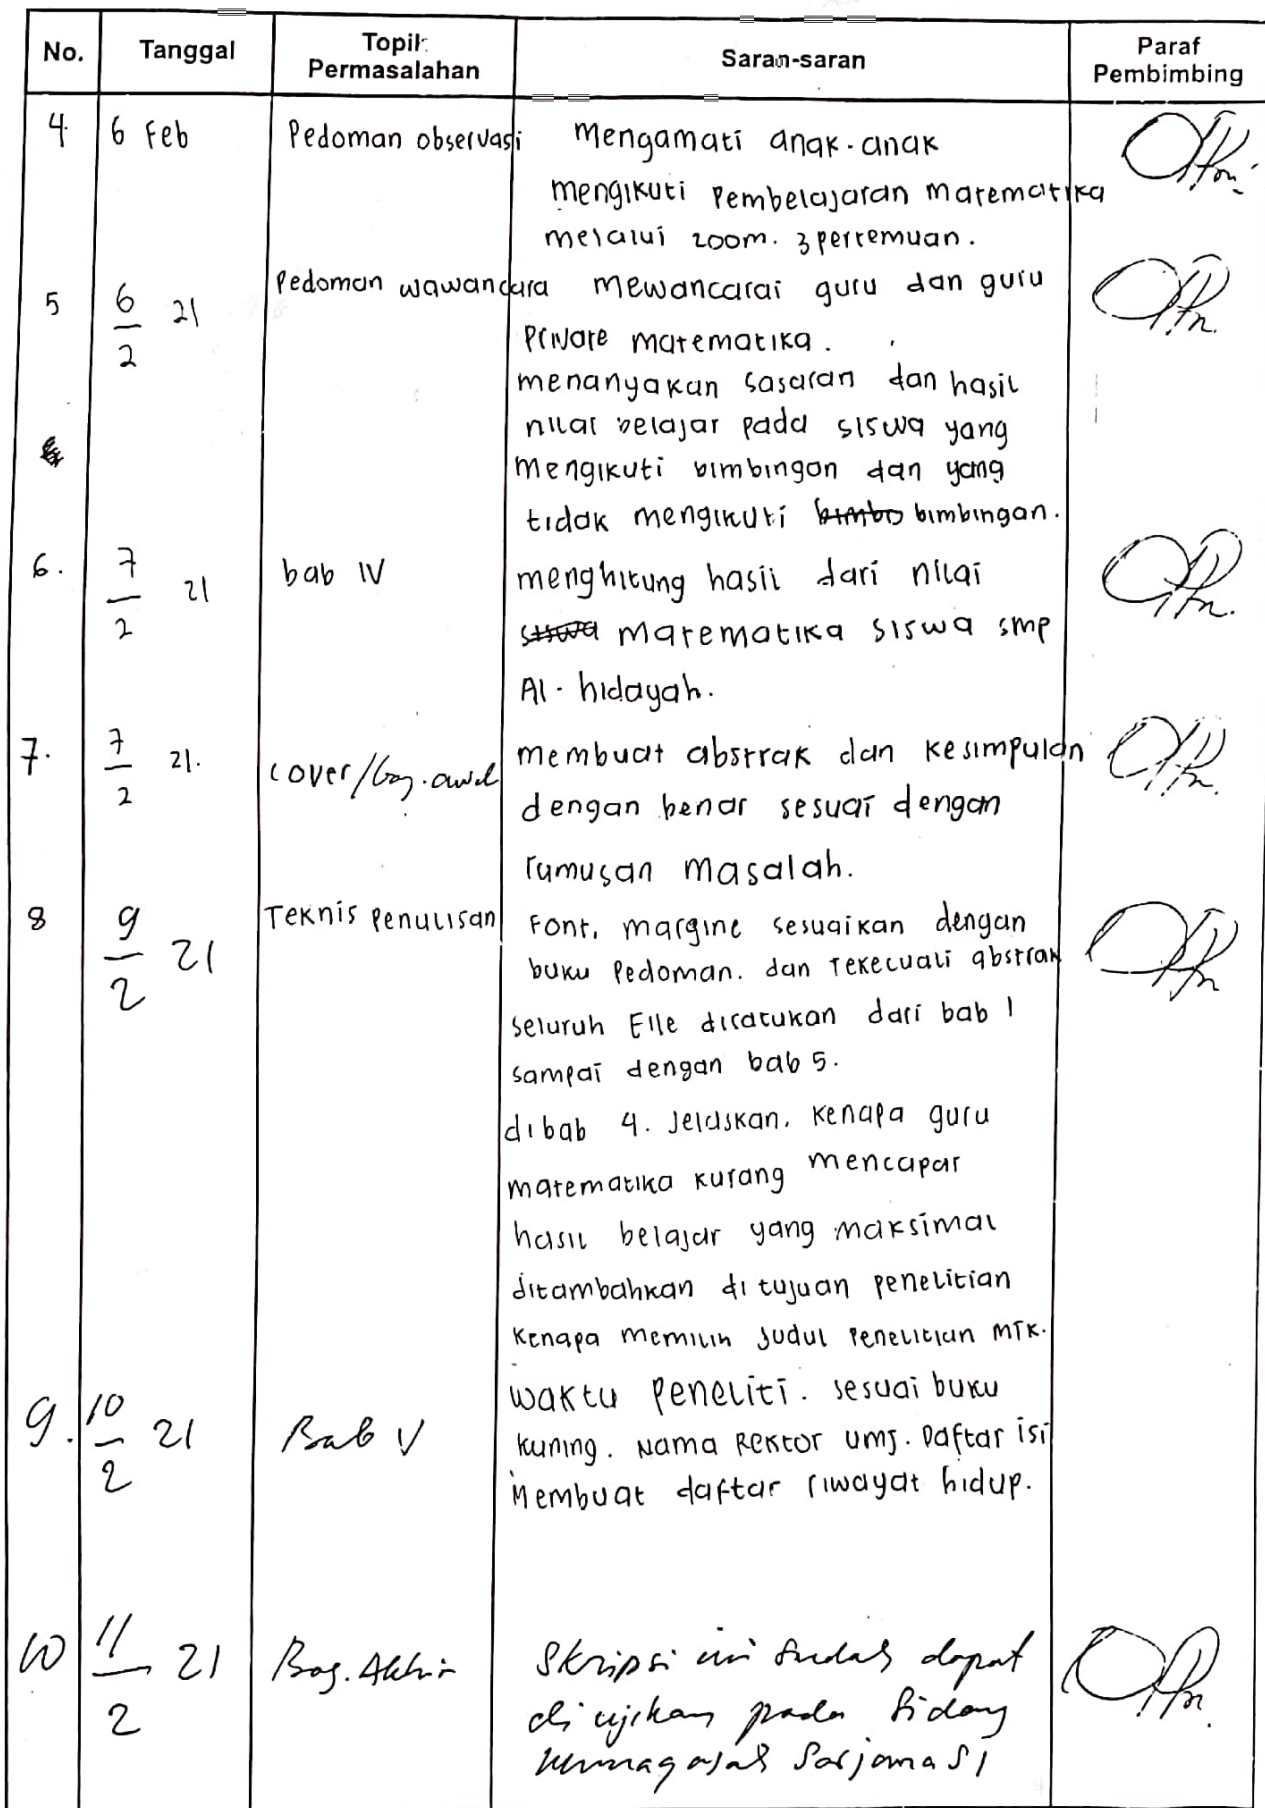 No. Tanggal Topik Permasalahan Saran-saran Paraf Pembimbing
4. 6 Feb Pedoman observasi mengamati anak-anak
mengikuti pembelajaran matematika
melalui zoom. 3 pertemuan.
5 6/2 21 Pedoman wawancara mewancarai guru dan guru
private matematika.
menanyakan sasaran dan hasil
nilai belajar pada siswa yang
mengikuti bimbingan dan yang
tidak mengikuti bimbingan.
6. 7/2 21 bab IV menghitung hasil dari nilai
matematika siswa smp
Al-hidayah.
7. 7/2 21. cover/bag. awal membuat abstrak dan kesimpulan
dengan benar sesuai dengan
rumusan masalah.
8 9/2 21 Teknis penulisan Font, margine sesuaikan dengan
buku pedoman. dan tekecuali abstrak
seluruh File disatukan dari bab 1
sampai dengan bab 5.
dibab 4. Jelaskan, kenapa guru
matematika kurang mencapai
hasil belajar yang maksimal
ditambahkan di tujuan penelitian
kenapa memilih judul penelitian MTK.
9. 10/2 21 Bab V waktu peneliti. sesuai buku
kuning. Nama Rektor umj. Daftar isi
Membuat daftar riwayat hidup.
10 11/2 21 Bag. Akhir Skripsi ini sudah dapat
di ujikan pada sidang
Sarjana S1